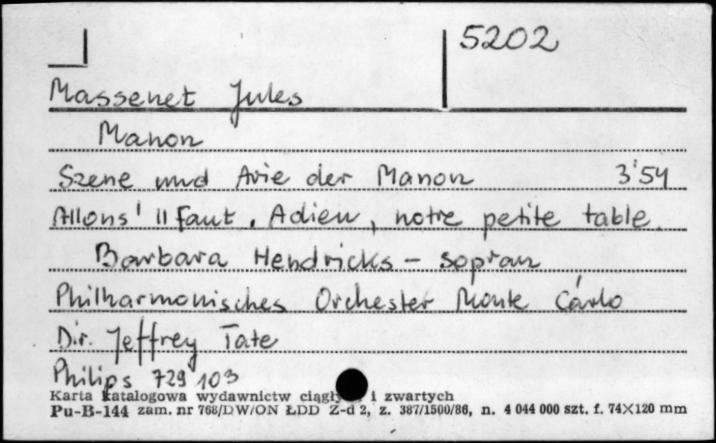 5202
Massenet Jules
Manon
Szene und Arie der Manon 3'54
Allons! Il faut, Adieu, notre petite table.
Barbara Hendricks – sopran
Philharmonisches Orchester Monte Carlo
Dir. Jeffrey Tate
Philips 729 103
Karta katalogowa wydawnictw ciągłych i zwartych
Pu-B-144 zam. nr 768/DW/ON ŁDD Z-d 2, z. 387/1500/86, n. 4 044 000 szt. f. 74×120 mm